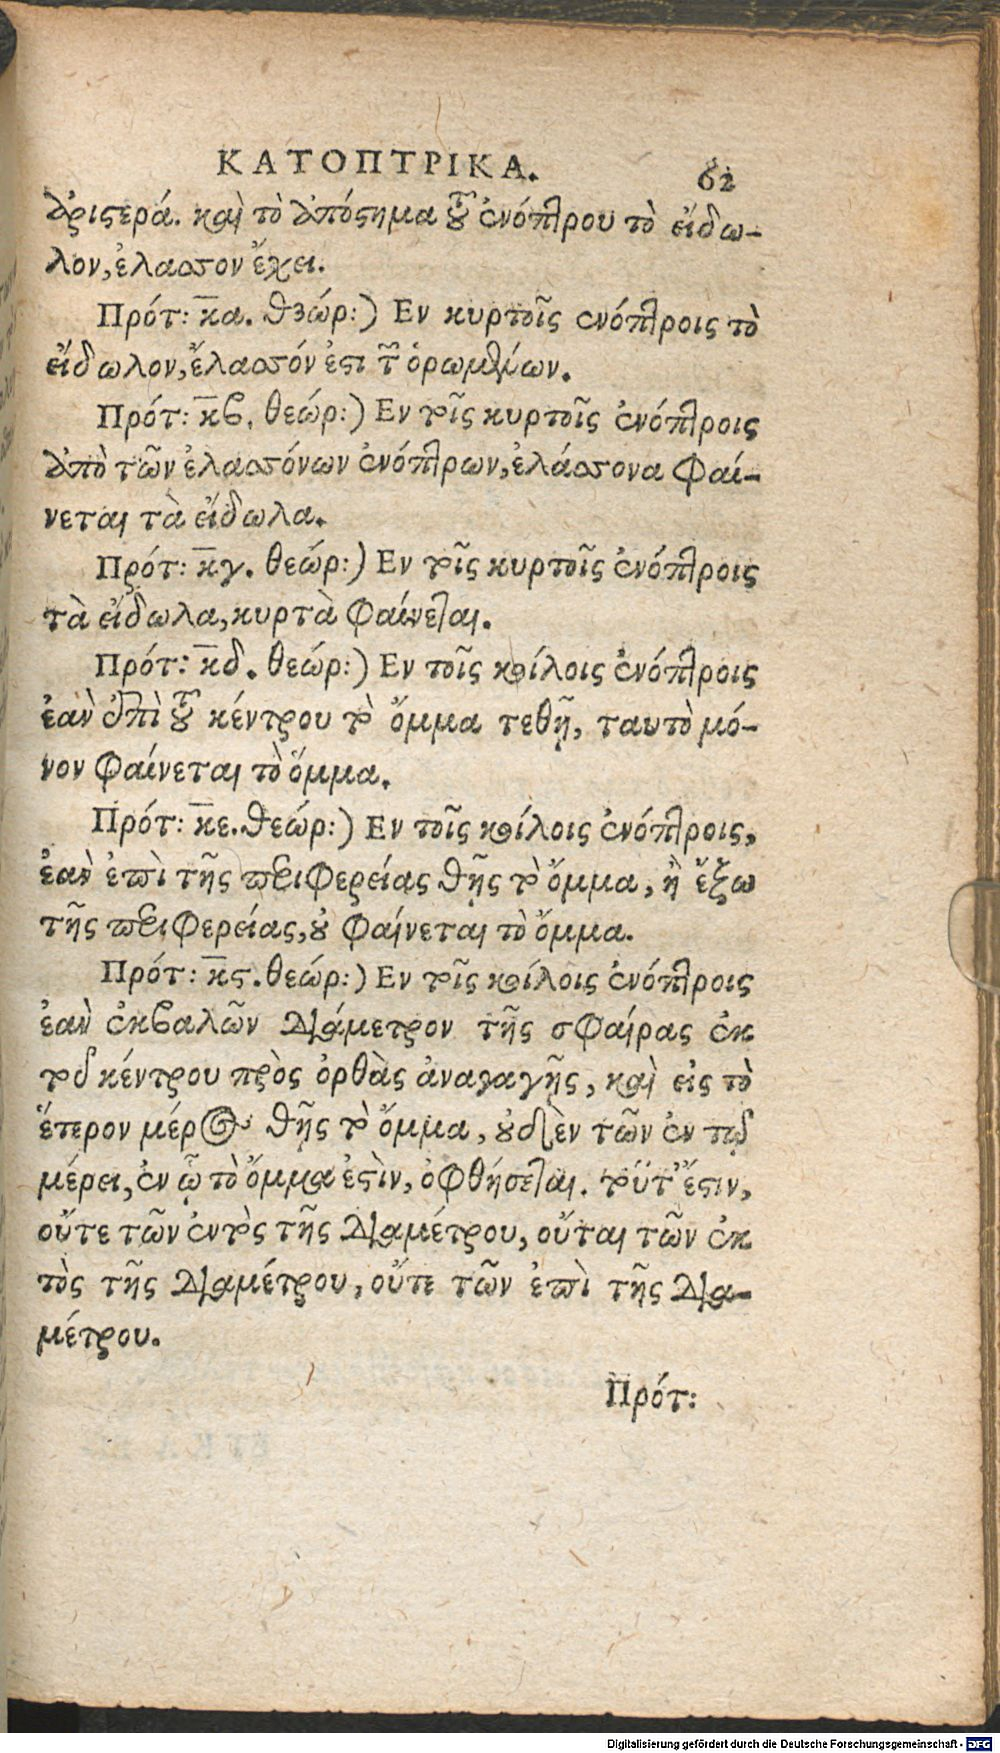 ΚΑΤΟΠΤΡΙΚΑ. 62
ἀριστερά. καὶ τὸ ἀπόστημα τοῦ ἐνόπτρου τὸ εἴδω-
λον, ἐλασσον ἔχει.
Πρότ: κ̅α. θεώρ:) Εν κυρτοῖς ἐνόπτροις τὸ
εἴδωλον, ἔλασσόν ἐστι τῶν ὁρωμένων.
Πρότ: κ̅β. θεώρ:) Εν τοῖς κυρτοῖς ἐνόπτροις
ἀπὸ τῶν ἐλασσόνων ἐνόπτρων, ἐλάσσονα φαί-
νεται τὰ εἴδωλα.
Πρότ: κ̅γ. θεώρ:) Εν τοῖς κυρτοῖς ἐνόπτροις
τὰ εἴδωλα, κυρτὰ φαίνεται.
Πρότ: κ̅δ. θεώρ:) Εν τοῖς κοίλοις ἐνόπτροις
ἐαὰν ἐπὶ τοῦ κέντρου τὸ ὄμμα τεθῇ, ταυτὸ μό-
νον φαίνεται τὸ ὄμμα.
Πρότ: κ̅ε. θεώρ:) Εν τοῖς κοίλοις ἐνόπτροις,
ἐὰν ἐπὶ τῆς περιφερείας θῇς τὸ ὄμμα, ἢ ἔξω
τῆς περιφερείας, οὐ φαίνεται τὸ ὄμμα.
Πρότ: κ̅ϛ. θεώρ:) Εν τοῖς κοίλοις ἐνόπτροις
ἐὰν ἐκβαλῶν διάμετρον τῆς σφαίρας ἐκ
τοῦ κέντρου πρὸς ὀρθὰς ἀναγαγῇς, καὶ εἰς τὸ
ἕτερον μέρος θῇς τὸ ὄμμα, οὐδὲν τῶν ἐν τῷ
μέρει, ἐν ᾧ τὸ ὄμμα ἐστὶν, ὀφθήσεται. τοῦτ' ἔστιν,
οὔτε τῶν ἐντὸς τῆς διαμέτρου, οὔται τῶν ἐκ
τὸς τῆς διαμέτρου, οὔτε τῶν ἐπὶ τῆς δια-
μέτρου.
Πρότ:
Digitalisierung gefördert durch die Deutsche Forschungsgemeinschaft - DFG